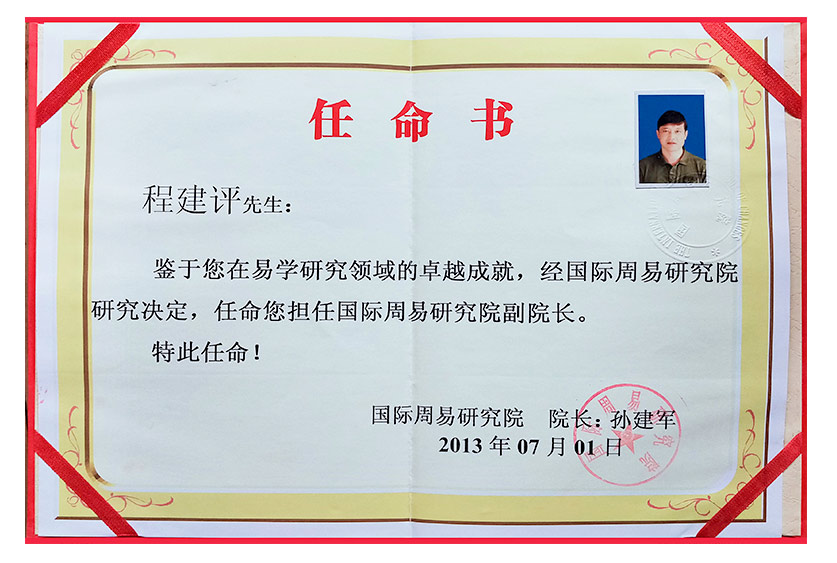 任命书
程建评先生：
鉴于您在易学研究领域的卓越成就，经国际周易研究院
研究决定，任命您担任国际周易研究院副院长。
特此任命！
国际周易研究院 院长：孙建军
2013 年 07 月 01 日
国际周易研究院